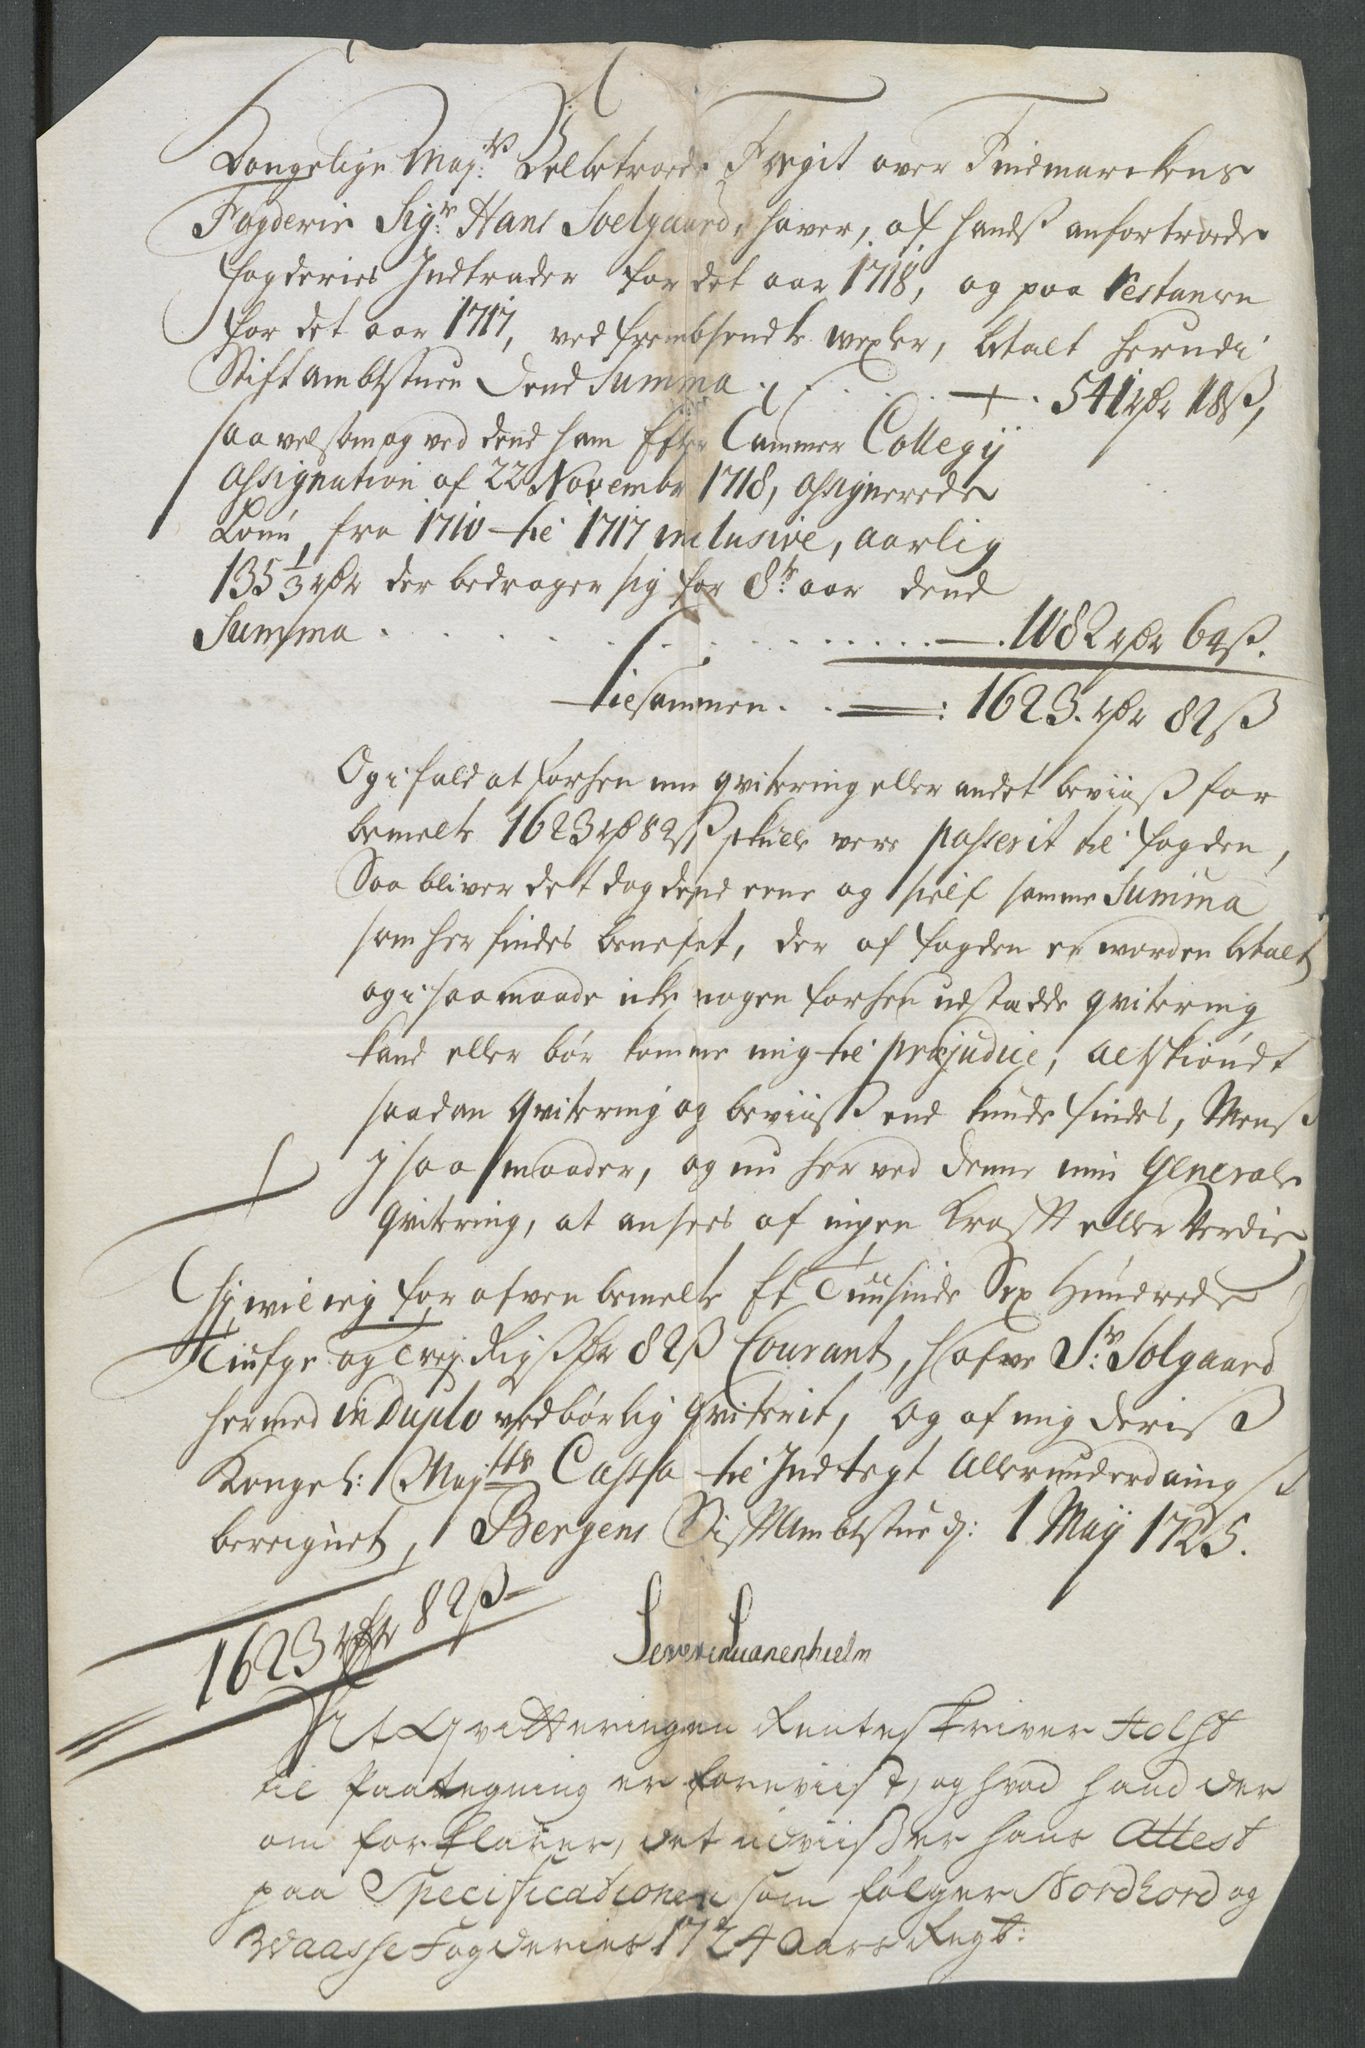 Kongelige Maj:ts Velbetroede Fogit over Findmarckens
Fogderie Sigr: Hans Soelgaard, haver, af hands anfortroede
fogderies Indtrader for det aar 1718, og paa Restancen
for det aar 1717, ved frembsendte wexler, betalt herudi
Stiftambtstuen dend Summa . . . 541 rdr 18 ß,
saavelsom og ved dend ham Efter Cammer Collegij
Assignation af 22 Novembr 1718, assignerede
Lønn, fra 1710 til 1717 inclusive, aarlig
135 1/3 rdr der bedrager sig for 8te aar dend
Summa . . . . . . . . . . 1082 rdr 64 ß.
tilsammen . . : 1623. rdr 82 ß
Og i fald at forhen min qvitering eller andet beviiß for
bemelte 1623 rdr 82 ß skulle vere passerit til fogden,
Saa bliver det dog dend eene og self samme Summa
som her findes benefnt, der af fogden er worden betalt
og i saa maade icke nogen forhen udstædde qvitering
kand eller bør komme mig til præjudice, alt skiøndt
saadan qvitering og beviiß end kunde findes, Mens
i saa maader, og nu her ved denne min General
qvitering, at ansees af ingen Krafft eller Verdie
Thj wil ieg for ofven bemelte Et Tuusinde Sex Hundrede
Tiufge og Trej Rigsdr 82 ß Courant, hafve Sr: Solgaard
hermed in Duplo vedbørlig qviterit, og af mig deriß
Kongel: Maj:ts Cassa til Indtegt Allerunderdanigst
bereignet, Bergens Stiftambtstue d: 1 Maij 1725.
1623 rdr 82 ß
Severin Suanenhielm
At Qvitteringen Renteskriver Holst
til Paategning er foreviist, og hvad hand der
om forklarer, det udviißer hans Attest
paa Specificationen som følger Nordhord og
Waasse Fogderies 1724 Aars Regsb: